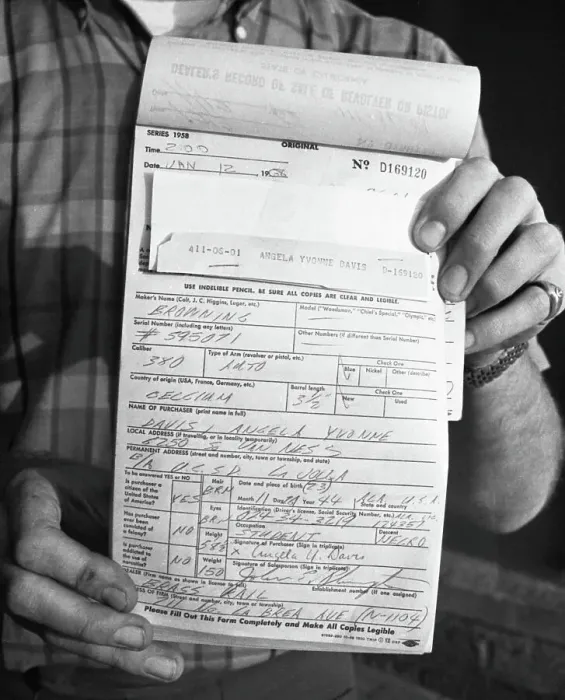 DEALER'S RECORD OF SALE OF REVOLVER OR PISTOL
SERIES 1958
ORIGINAL
Time 2:00
Nº D169120
Date JAN 12, 19
411-06-01 ANGELA YVONNE DAVIS D-169120
USE INDELIBLE PENCIL. BE SURE ALL COPIES ARE CLEAR AND LEGIBLE.
Maker's Name (Colt, J. C. Higgins, Luger, etc.)
Model ("Woodsman," "Chief's Special," "Olympic," etc.)
BROWNING
Serial Number (including any letters)
Other Numbers (if different than Serial Number)
# 595071
Caliber
Type of Arm (revolver or pistol, etc.)
Check One
380
AUTO
Blue Nickel Other (describe)
Country of origin (USA, France, Germany, etc.)
Barrel length
Check One
3 1/2"
New Used
NAME OF PURCHASER (print name in full)
DAVIS, ANGELA YVONNE
LOCAL ADDRESS (if traveling, or in locality temporarily)
PERMANENT ADDRESS (street and number, city, town or township, and state)
LA JOLLA
To be answered YES or NO
Hair
Date and place of birth
Is purchaser a citizen of the United States of America?
YES
BRN
Month Day Year 44 ALA. U.S.A.
State and country
Eyes
Identification (Driver's license, Social Security Number, etc.)
BRN
Has purchaser ever been convicted of a felony?
NO
Height
Occupation
STUDENT
Descent
NEGRO
Signature of Purchaser (Sign in triplicate)
x Angela Y. Davis
Is purchaser addicted to the use of narcotics?
NO
Weight
150
Signature of Salesperson (Sign in triplicate)
DEALER (Firm name as shown in license)
Establishment number (if one assigned)
BRASS RAIL
ADDRESS OF FIRM (Street and number, city, town or township)
711 NO. LA BREA AVE (N-1104)
Please Fill Out This Form Completely and Make All Copies Legible